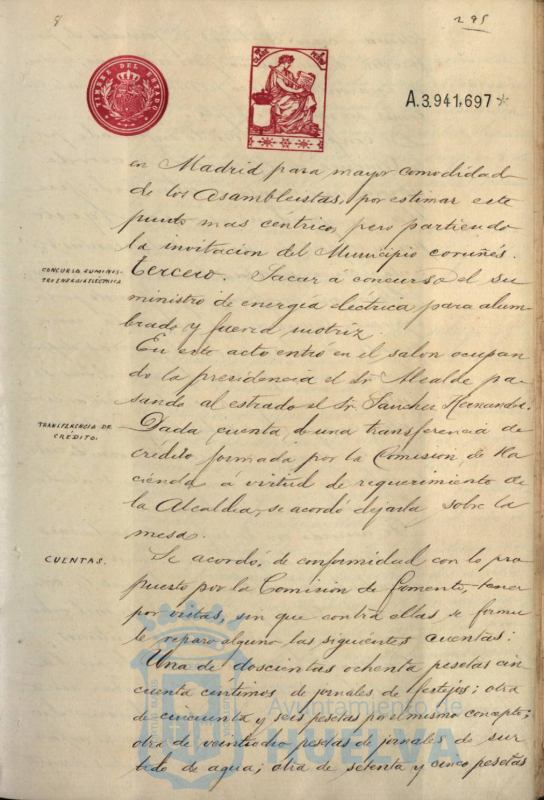 8
295
TIMBRE DEL ESTADO
A.3.941,697*
en Madrid para mayor comodidad
de los Asambleistas, por estimar este
punto mas céntrico, pero partiendo
la invitacion del Municipio coruñés.
CONCURSO SUMINIS-
TRO ENERGIA ELECTRICA
Tercero. Sacar á concurso el su
ministro de energía electrica para alum-
brado y fuerza motriz.
En este acto entró en el salon ocupan
do la presidencia el Sr. Alcalde pa-
sando al estrado el Sr. Sanchez Hernandez.
TRANSFERENCIA DE
CREDITO.
Dada cuenta de una transferencia de
crédito formada por la Comision de Ha
cienda a virtud de requerimiento de
la Alcaldía, se acordó dejarla sobre la
mesa.
CUENTAS.
Se acordó, de conformidad con lo pro
puesto por la Comision de Fomento, tener
por vistas, sin que contra ellas se formu
le reparo alguno las siguientes cuentas:
Una de doscientas ochenta pesetas cin
cuenta céntimos de jornales de festejos; otra
de cincuenta y seis pesetas por el mismo concepto;
otra de veintiocho pesetas de jornales de sur
tido de agua; otra de setenta y cinco pesetas
Ayuntamiento de
HUELVA